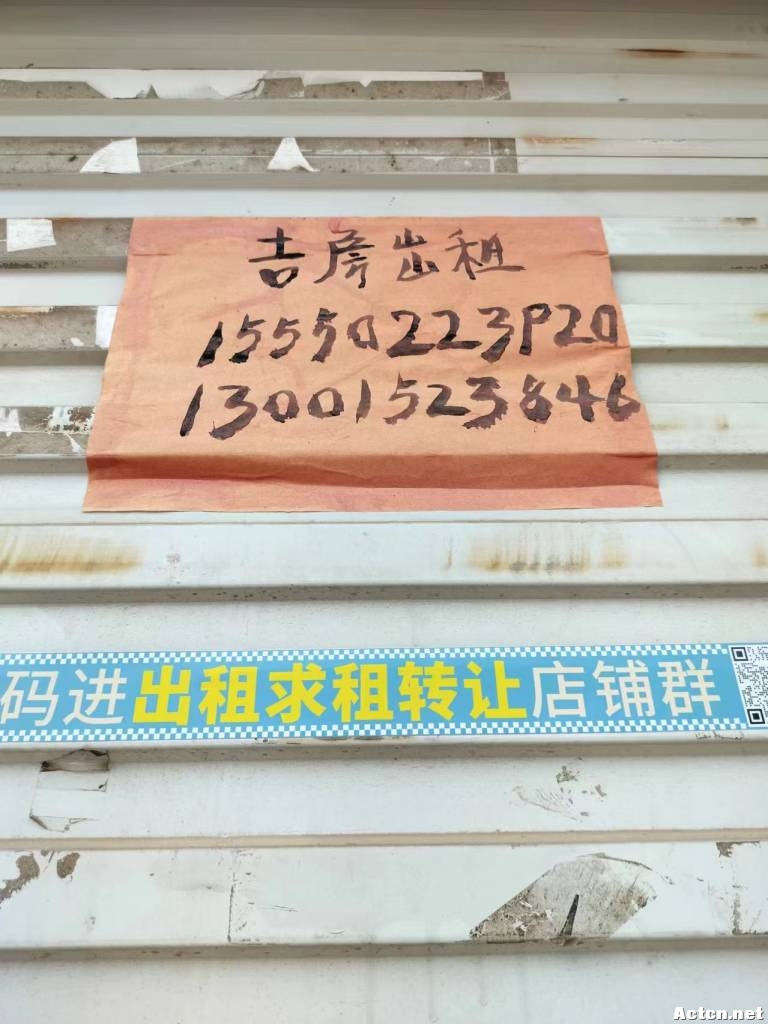 吉房出租
15550223P20
13001523846
码进出租求租转让店铺群
Actcn.net